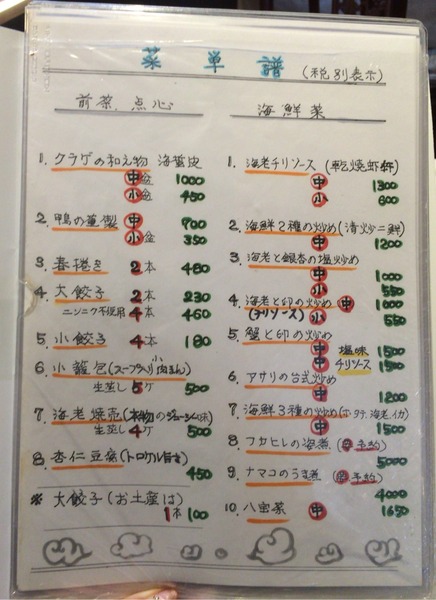 菜單譜 (税別表示)
前菜、点心
1. クラゲの和え物 海蜇皮
中盆 1000
小盆 450
2. 鴨の薫製 中 700
小盆 350
3. 春捲き 2本 480
4. 大餃子 2本 230
ニンニク不使用 4本 460
5. 小餃子 4本 180
6. 小籠包(スープ入り小肉まん)
生蒸し 5ヶ 500
7. 海老焼売(本物のジューシー味)
生蒸し 4ヶ 500
8. 杏仁豆腐(トロリクル旨さ)
450
※ 大餃子(お土産は)
1本 100
海鮮菜
1. 海老チリソース (乾焼蝦)
中 1300
小 600
2. 海鮮2種の炒め(清炒二鮮)
中 1200
3. 海老と銀杏の塩炒め
中 1000
小 550
4. 海老と卵の炒め 中 1000
(チリソース) 小 550
5. 蟹と卵の炒め
中 塩味 1500
中 チリソース 1500
6. アサリの台式炒め
中 1200
7. 海鮮3種の炒め(ホタテ、海老、イカ)
中 1500
8. フカヒレの姿煮 (要予約)
5000
9. ナマコのうま煮 (要予約)
4000
10. 八宝菜 中 1650